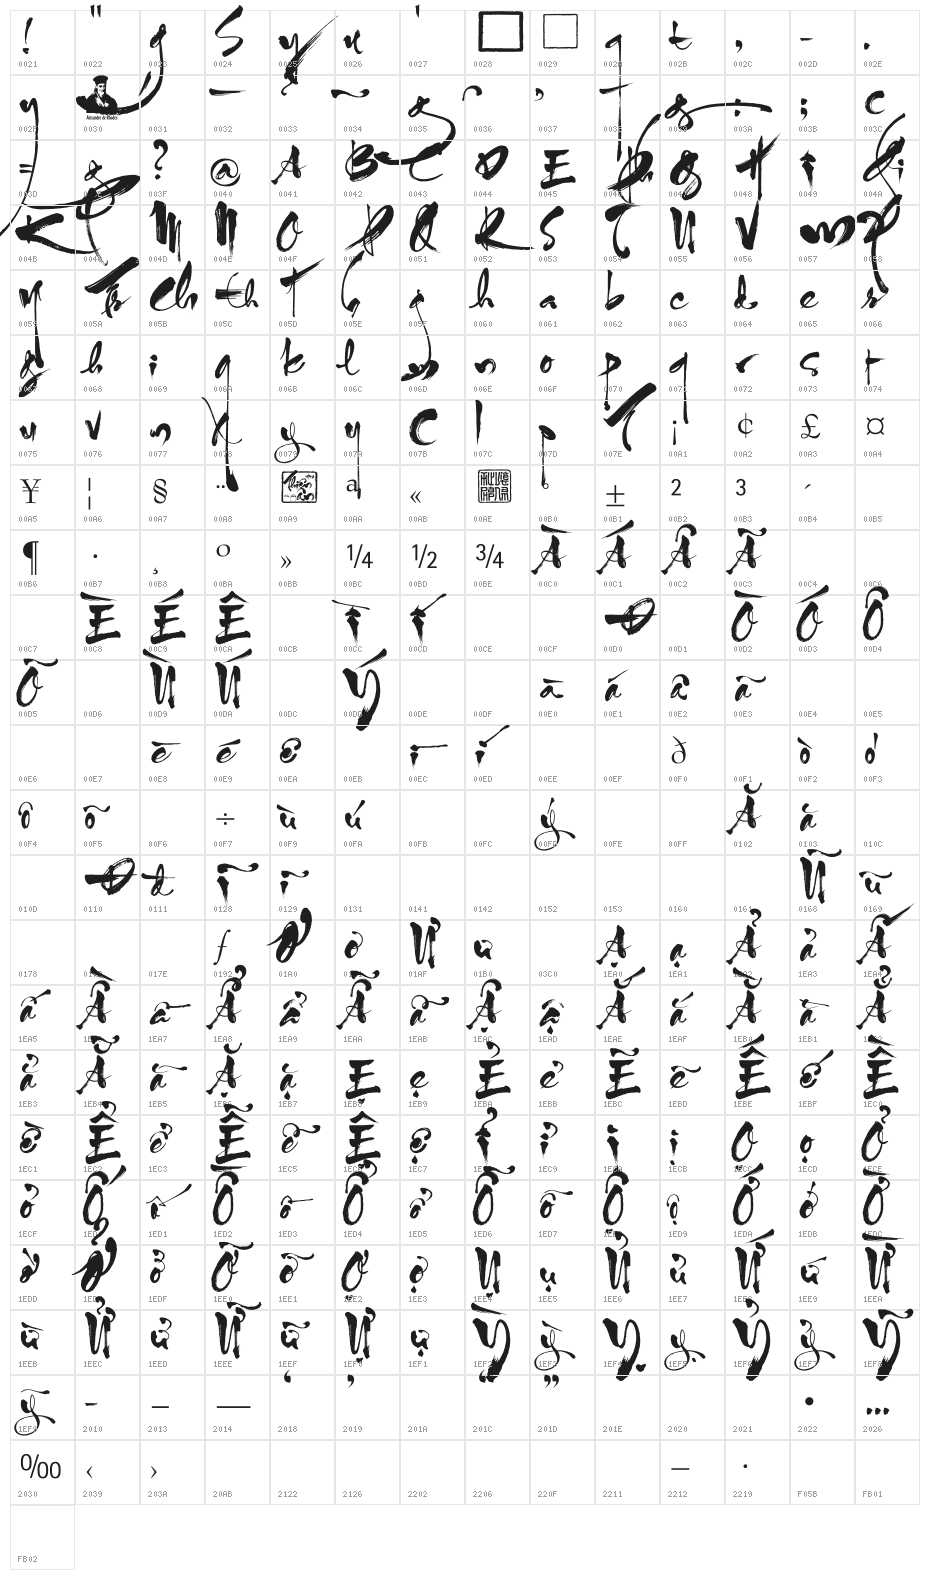 ! " g S y u ' q t , - .
0021 0022 0023 0024 0025 0026 0027 0028 0029 002A 002B 002C 002D 002E
y g : ; c
Alexandre de Rhodes
002F 0030 0031 0032 0033 0034 0035 0036 0037 0038 0039 003A 003B 003C
= ? @ A B C D E
003D 003E 003F 0040 0041 0042 0043 0044 0045 0046 0047 0048 0049 004A
K L M N O P Q R S T U V
004B 004C 004D 004E 004F 0050 0051 0052 0053 0054 0055 0056 0057 0058
Y Tr Ch th t h a b c d e r
0059 005A 005B 005C 005D 005E 005F 0060 0061 0062 0063 0064 0065 0066
g h i q k l m n o p q r s t
0067 0068 0069 006A 006B 006C 006D 006E 006F 0070 0071 0072 0073 0074
u v n x y y C l p T ¡ ¢ £ ¤
0075 0076 0077 0078 0079 007A 007B 007C 007D 007E 00A1 00A2 00A3 00A4
¥ ¦ § ¨ a « ± 2 3 ´
00A5 00A6 00A7 00A8 00A9 00AA 00AB 00AE 00B0 00B1 00B2 00B3 00B4 00B5
¶ · ¸ º » 1/4 1/2 3/4 À Á Â Ã
00B6 00B7 00B8 00BA 00BB 00BC 00BD 00BE 00C0 00C1 00C2 00C3 00C4 00C6
È É Ê Ì Í Đ Ò Ó Ô
00C7 00C8 00C9 00CA 00CB 00CC 00CD 00CE 00CF 00D0 00D1 00D2 00D3 00D4
Õ Ù Ú Ý à á â ã
00D5 00D6 00D9 00DA 00DC 00DD 00DE 00DF 00E0 00E1 00E2 00E3 00E4 00E5
è é ê ì í ð ò ó
00E6 00E7 00E8 00E9 00EA 00EB 00EC 00ED 00EE 00EF 00F0 00F1 00F2 00F3
ô õ ÷ ù ú ý Ă ă
00F4 00F5 00F6 00F7 00F9 00FA 00FB 00FC 00FD 00FE 00FF 0102 0103 010C
Đ đ Ĩ ĩ Ũ ũ
010D 0110 0111 0128 0129 0131 0141 0142 0152 0153 0160 0161 0168 0169
ƒ Ơ ơ Ư ư Ạ ạ Ả ả Ấ
0178 017D 017E 0192 01A0 01A1 01AF 01B0 03C0 1EA0 1EA1 1EA2 1EA3 1EA4
ấ Ầ ầ Ẩ ẩ Ẫ ẫ Ậ ậ Ắ ắ Ằ ằ Ẳ
1EA5 1EA6 1EA7 1EA8 1EA9 1EAA 1EAB 1EAC 1EAD 1EAE 1EAF 1EB0 1EB1 1EB2
ẳ Ẵ ẵ Ặ ặ Ẹ ẹ Ẻ ẻ Ẽ ẽ Ế ế Ề
1EB3 1EB4 1EB5 1EB6 1EB7 1EB8 1EB9 1EBA 1EBB 1EBC 1EBD 1EBE 1EBF 1EC0
ề Ể ể Ễ ễ Ệ ệ Ỉ ỉ Ị ị Ọ ọ Ỏ
1EC1 1EC2 1EC3 1EC4 1EC5 1EC6 1EC7 1EC8 1EC9 1ECA 1ECB 1ECC 1ECD 1ECE
ỏ Ố ố Ồ ồ Ổ ổ Ỗ ỗ Ộ ộ Ớ ớ Ờ
1ECF 1ED0 1ED1 1ED2 1ED3 1ED4 1ED5 1ED6 1ED7 1ED8 1ED9 1EDA 1EDB 1EDC
ờ Ở ở Ỡ ỡ Ợ ợ Ụ ụ Ủ ủ Ứ ứ Ừ
1EDD 1EDE 1EDF 1EE0 1EE1 1EE2 1EE3 1EE4 1EE5 1EE6 1EE7 1EE8 1EE9 1EEA
ừ Ử ử Ữ ữ Ự ự Ỳ ỳ Ỵ ỵ Ỷ ỷ Ỹ
1EEB 1EEC 1EED 1EEE 1EEF 1EF0 1EF1 1EF2 1EF3 1EF4 1EF5 1EF6 1EF7 1EF8
ỹ ‐ – — ‘ ’ “ ” • …
1EF9 2010 2013 2014 2018 2019 201A 201C 201D 201E 2020 2021 2022 2026
‰ ‹ › − ∙
2030 2039 203A 20AB 2122 2126 2202 2206 220F 2211 2212 2219 F05B FB01
FB02